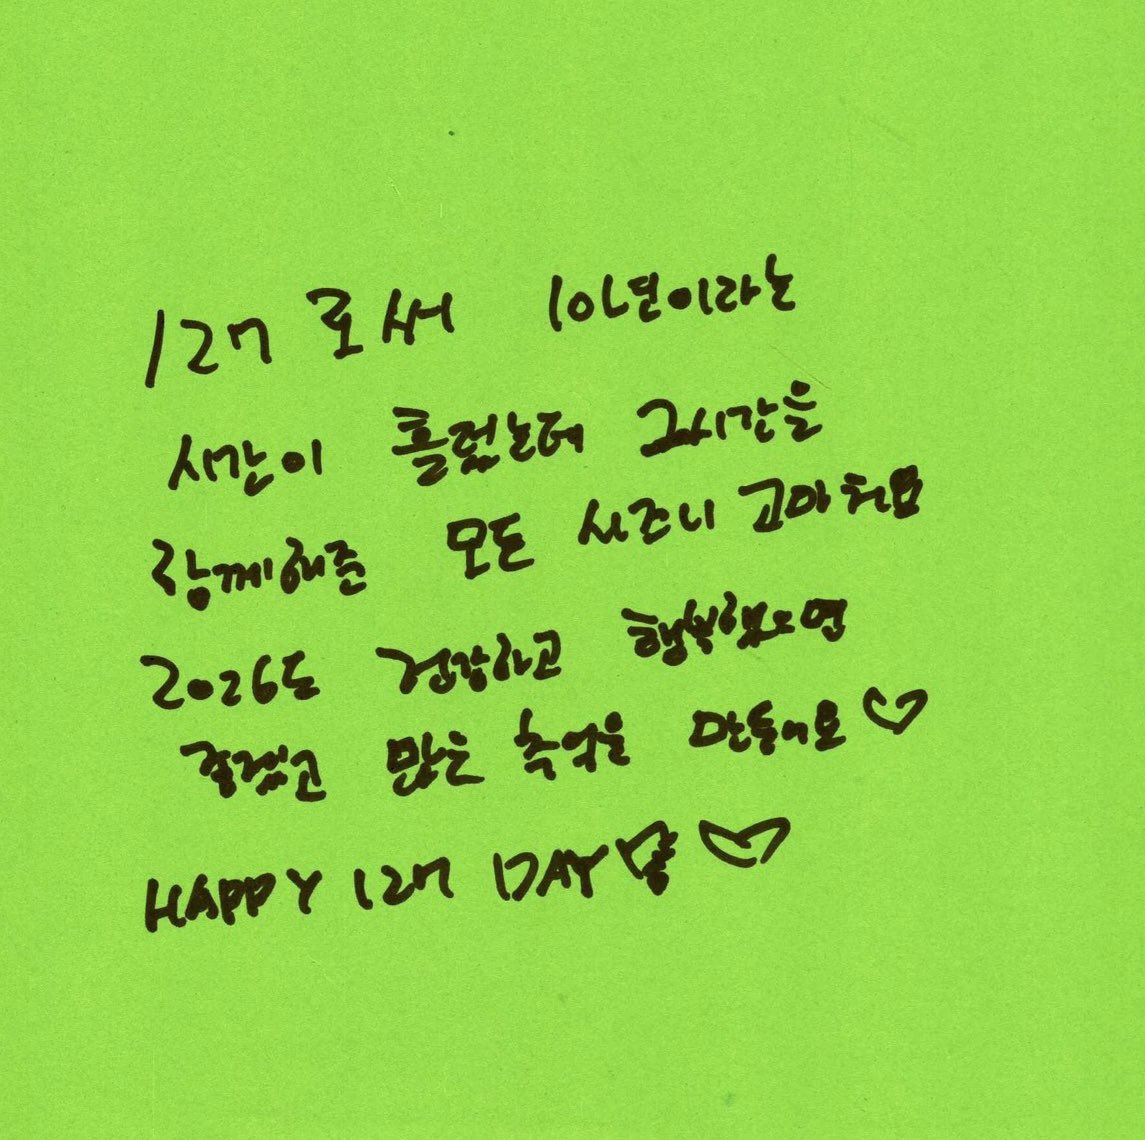 127로써 10년이라는
시간이 흘렀는데 그시간을
함께해준 모든 시즈니 고마워요
2026도 건강하고 행복했으면
좋겠고 많은 추억을 만들어요♡
HAPPY 127 DAY ♡